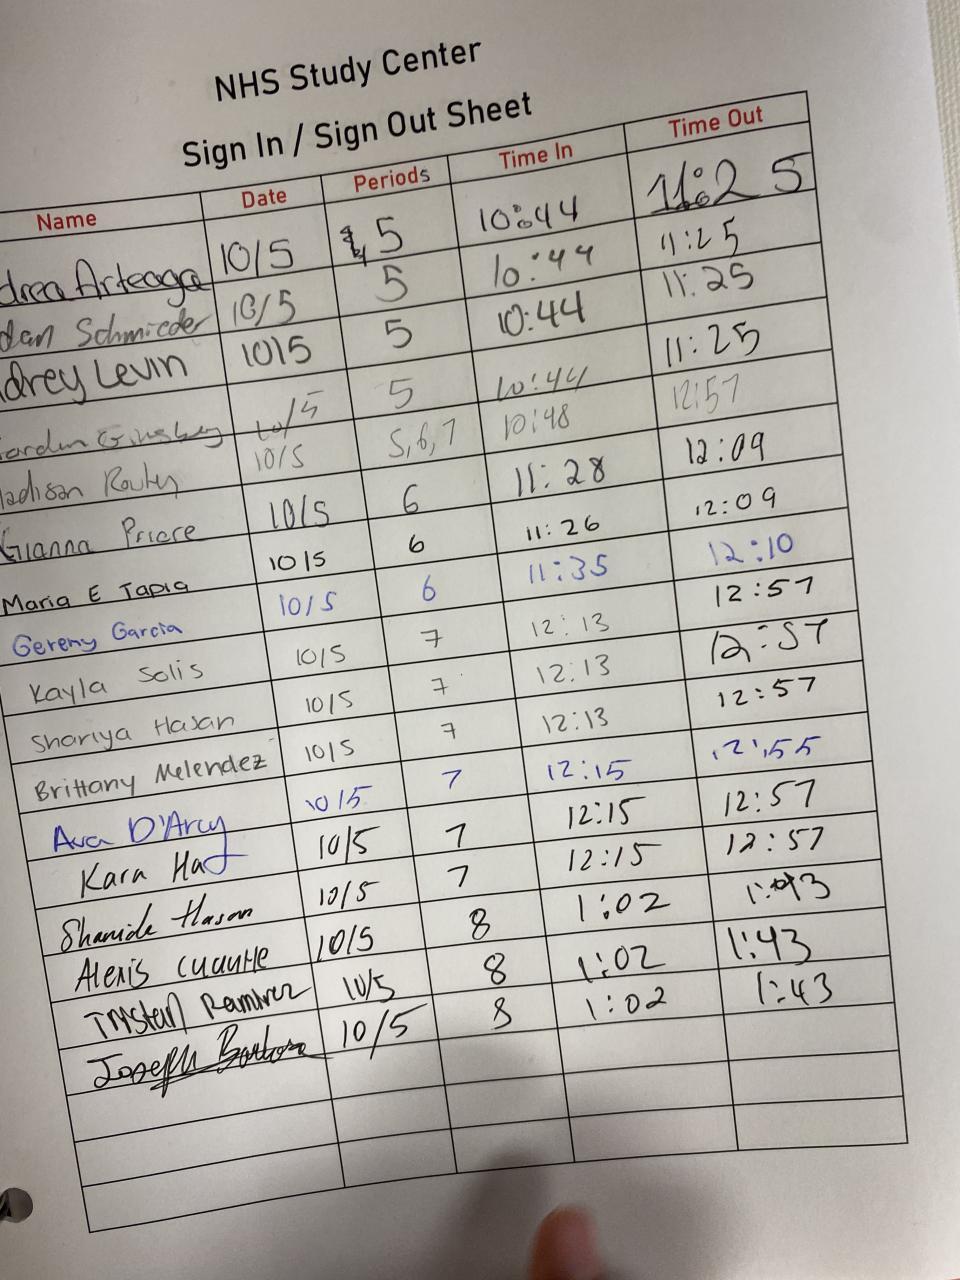 NHS Study Center
Sign In / Sign Out Sheet
Name Date Periods Time In Time Out
drea Arteaga 10/5 5 10:44 11:25
dan Schmieder 10/5 5 10:44 11:25
drey Levin 10/5 5 10:44 11:25
10/5 5 10:44 11:25
adison 10/5 5,6,7 10:48 12:57
Gianna Priore 10/5 6 11:28 12:09
Maria E Tapia 10/5 6 11:26 12:09
Gereny Garcia 10/5 6 11:35 12:10
Kayla Solis 10/5 7 12:13 12:57
Shariya Hasan 10/5 7 12:13 12:57
Brittany Melendez 10/5 7 12:13 12:57
Ava D'Arcy 10/5 7 12:15 12:55
Kara 10/5 7 12:15 12:57
Hasan 10/5 7 12:15 12:57
Alexis Cuautle 10/5 8 1:02 1:43
Tristan Ramirez 10/5 8 1:02 1:43
Joseph 10/5 8 1:02 1:43